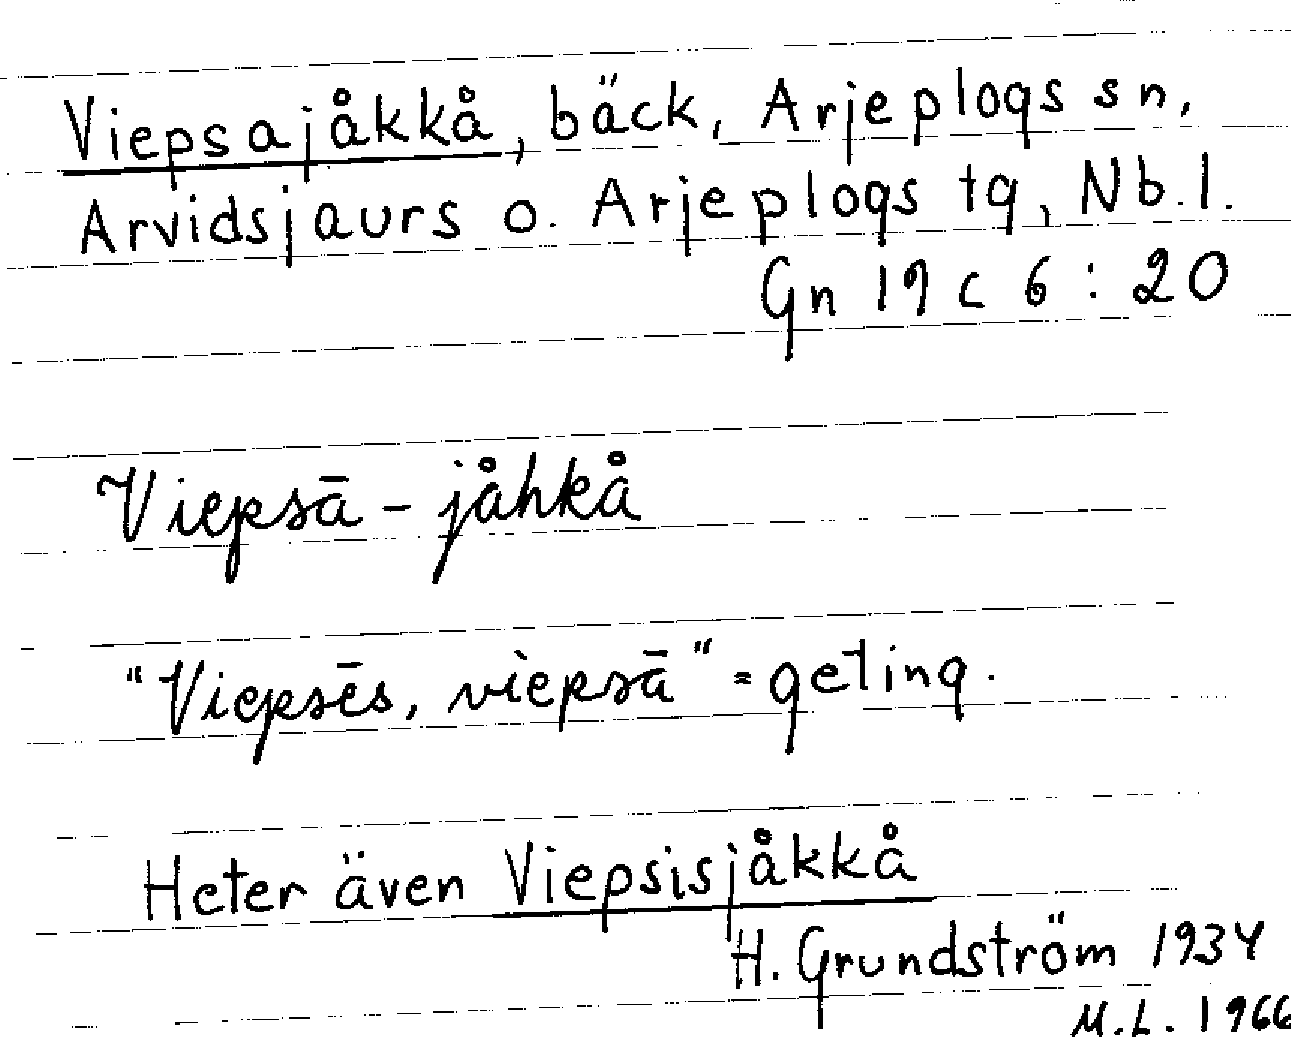 Viepsajåkkå, bäck, Arjeplogs sn,
Arvidsjaurs o. Arjeplogs tg, Nb.l.
Gn 19 c 6 : 20
Viepsā - jåhkå
"Viepsēs, vìepsā" = geting.
Heter även Viepsisjåkkå
H. Grundström 1934
M.L. 1966